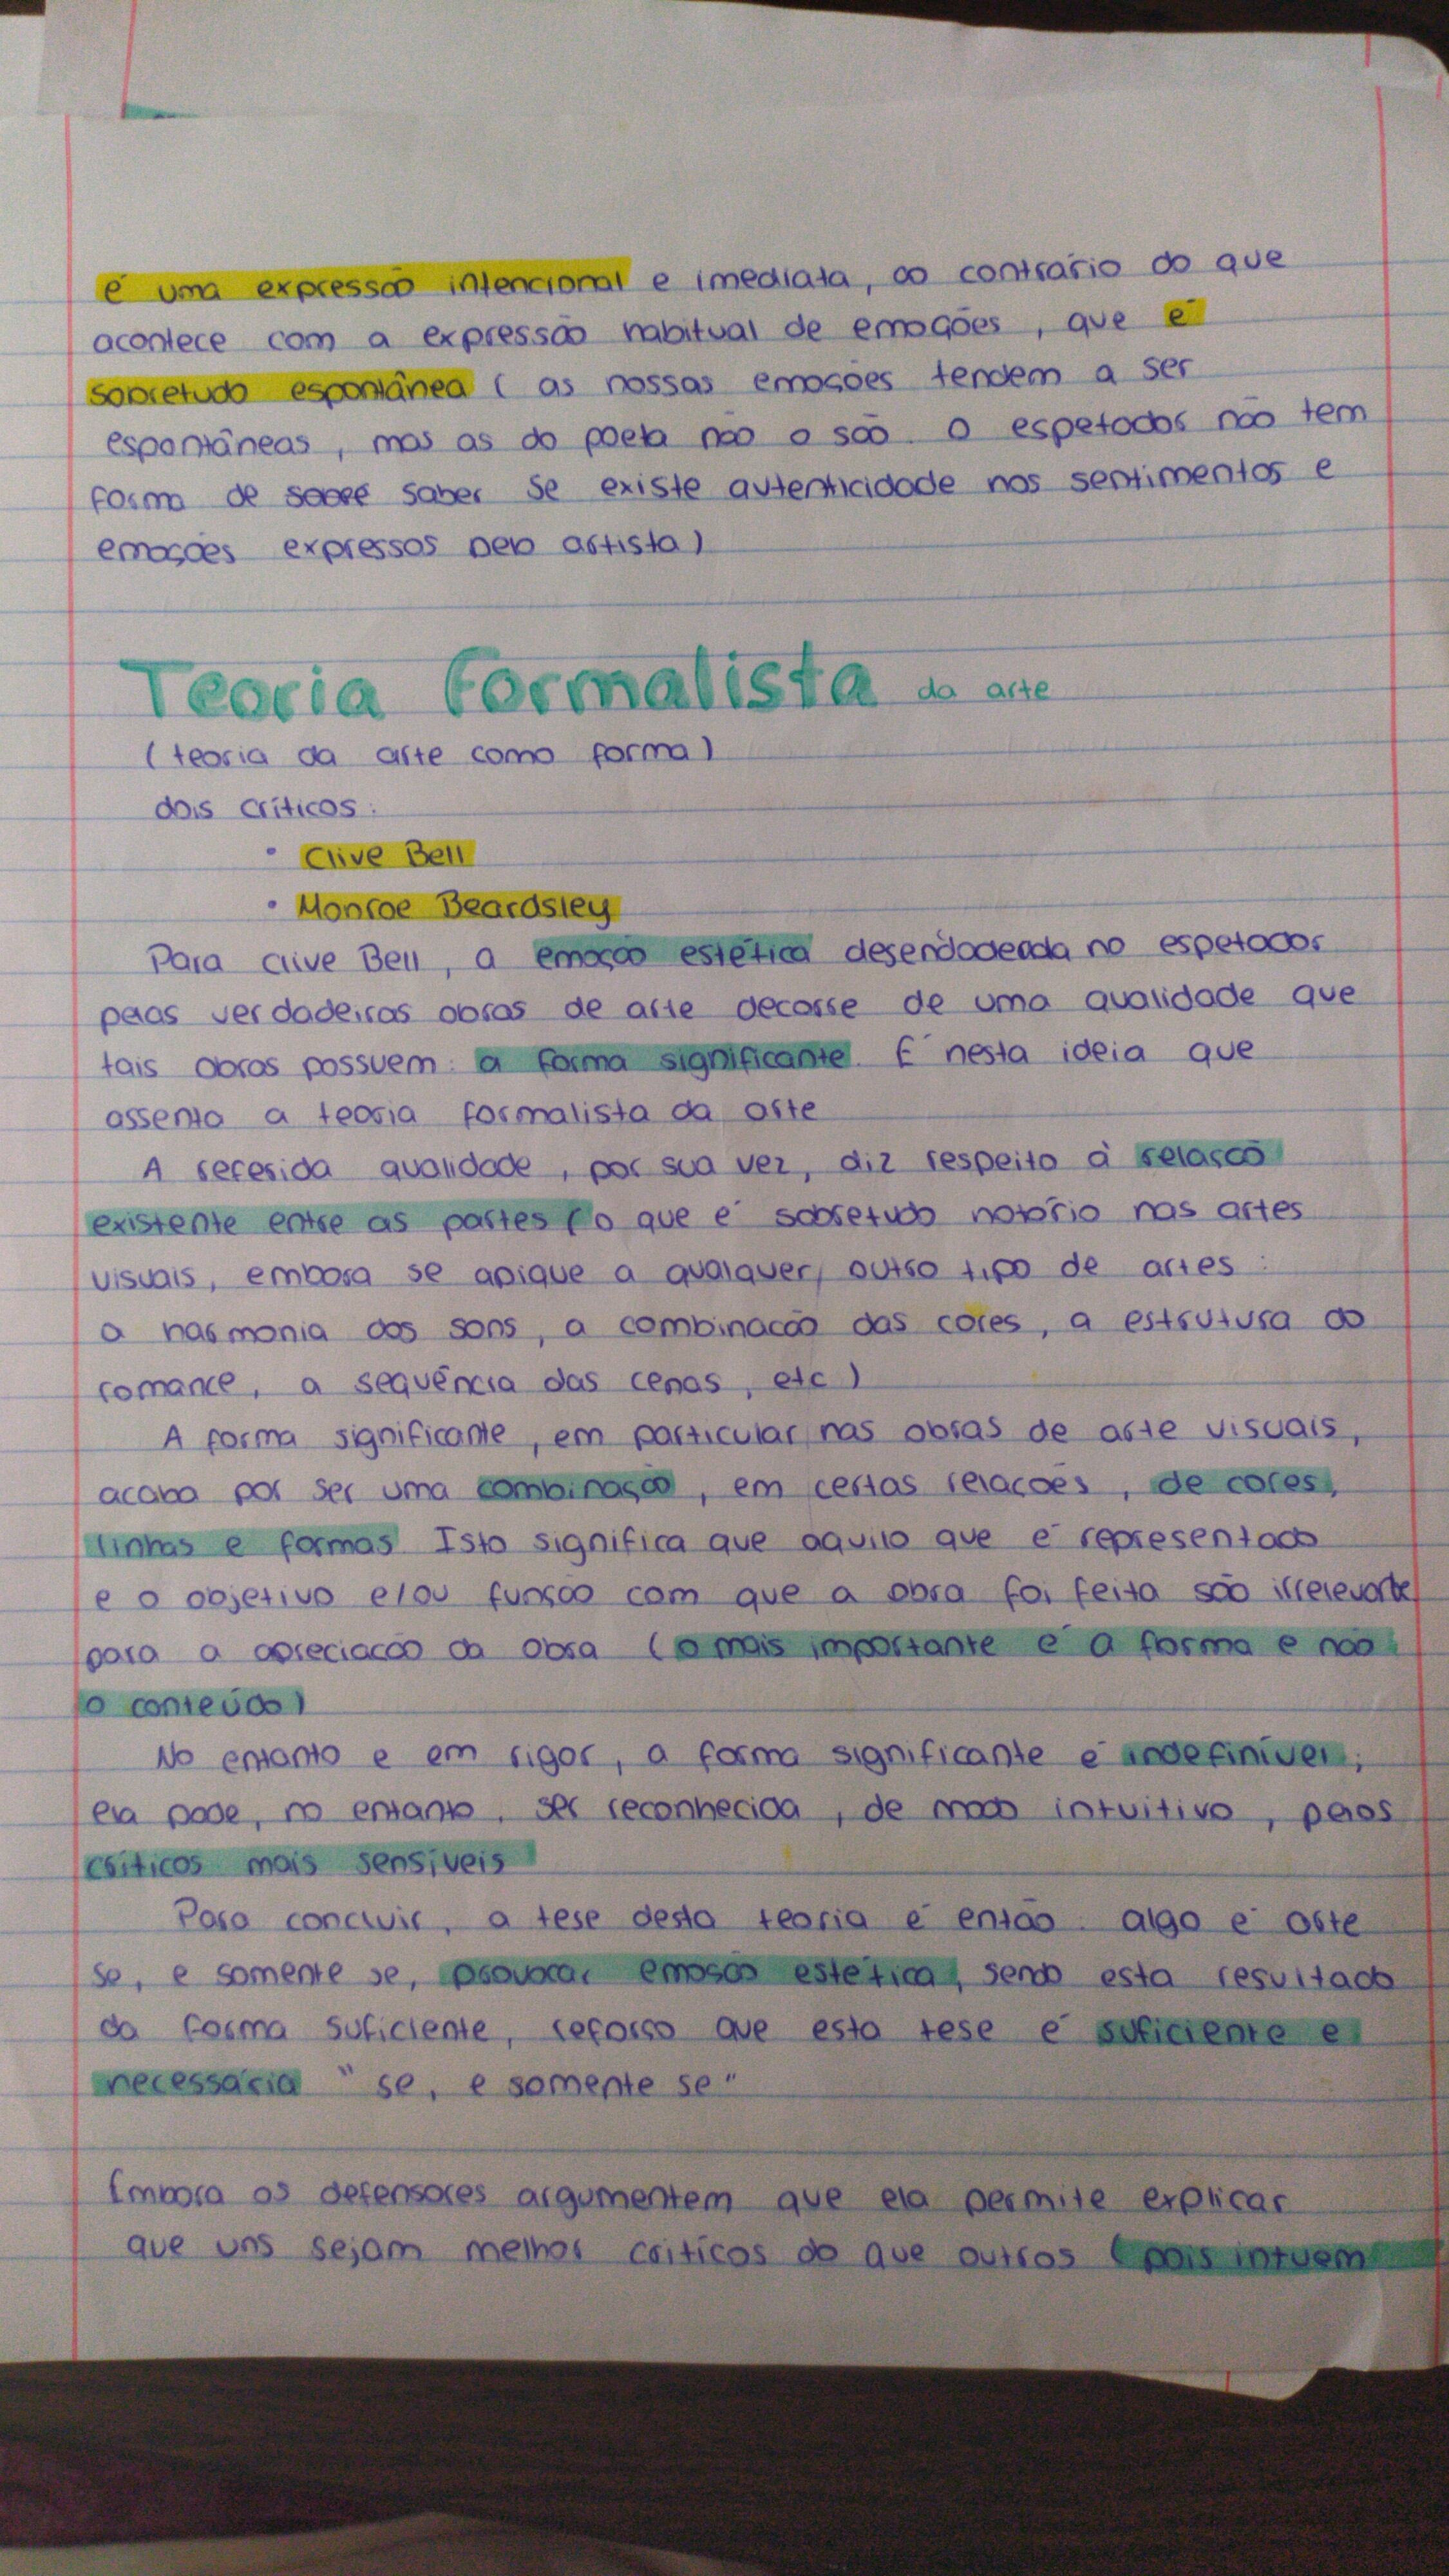 é uma expressão intencional e imediata, ao contrário do que
acontece com a expressão habitual de emoções, que é
sobretudo espontânea (as nossas emoções tendem a ser
espontâneas, mas as do poeta não o são. O espetador não tem
forma de saber se existe autenticidade nos sentimentos e
emoções expressos pelo artista)
Teoria Formalista da arte
(teoria da arte como forma)
dois críticos:
• Clive Bell
• Monroe Beardsley
Para Clive Bell, a emoção estética no espetador
pelas verdadeiras obras de arte decorre de uma qualidade que
tais obras possuem: a forma significante. É nesta ideia que
assenta a teoria formalista da arte
A referida qualidade, por sua vez, diz respeito à relação
existente entre as partes (o que é sobretudo notório nas artes
visuais, embora se aplique a qualquer outro tipo de artes:
a harmonia dos sons, a combinação das cores, a estrutura do
romance, a sequência das cenas, etc)
A forma significante, em particular nas obras de arte visuais,
acaba por ser uma combinação, em certas relações, de cores,
linhas e formas. Isto significa que aquilo que é representado
e o objetivo e/ou função com que a obra foi feita são irrelevante
para a apreciação da obra (o mais importante é a forma e não
o conteúdo)
No entanto e em rigor, a forma significante é indefinível;
ela pode, no entanto, ser reconhecida, de modo intuitivo, pelos
críticos mais sensíveis
Para concluir, a tese desta teoria é então: algo é arte
se, e somente se, provocar emoção estética, sendo esta resultado
da forma suficiente, reforço que esta tese é suficiente e
necessária "se, e somente se"
Embora os defensores argumentem que ela permite explicar
que uns sejam melhor críticos do que outros (pois intuem